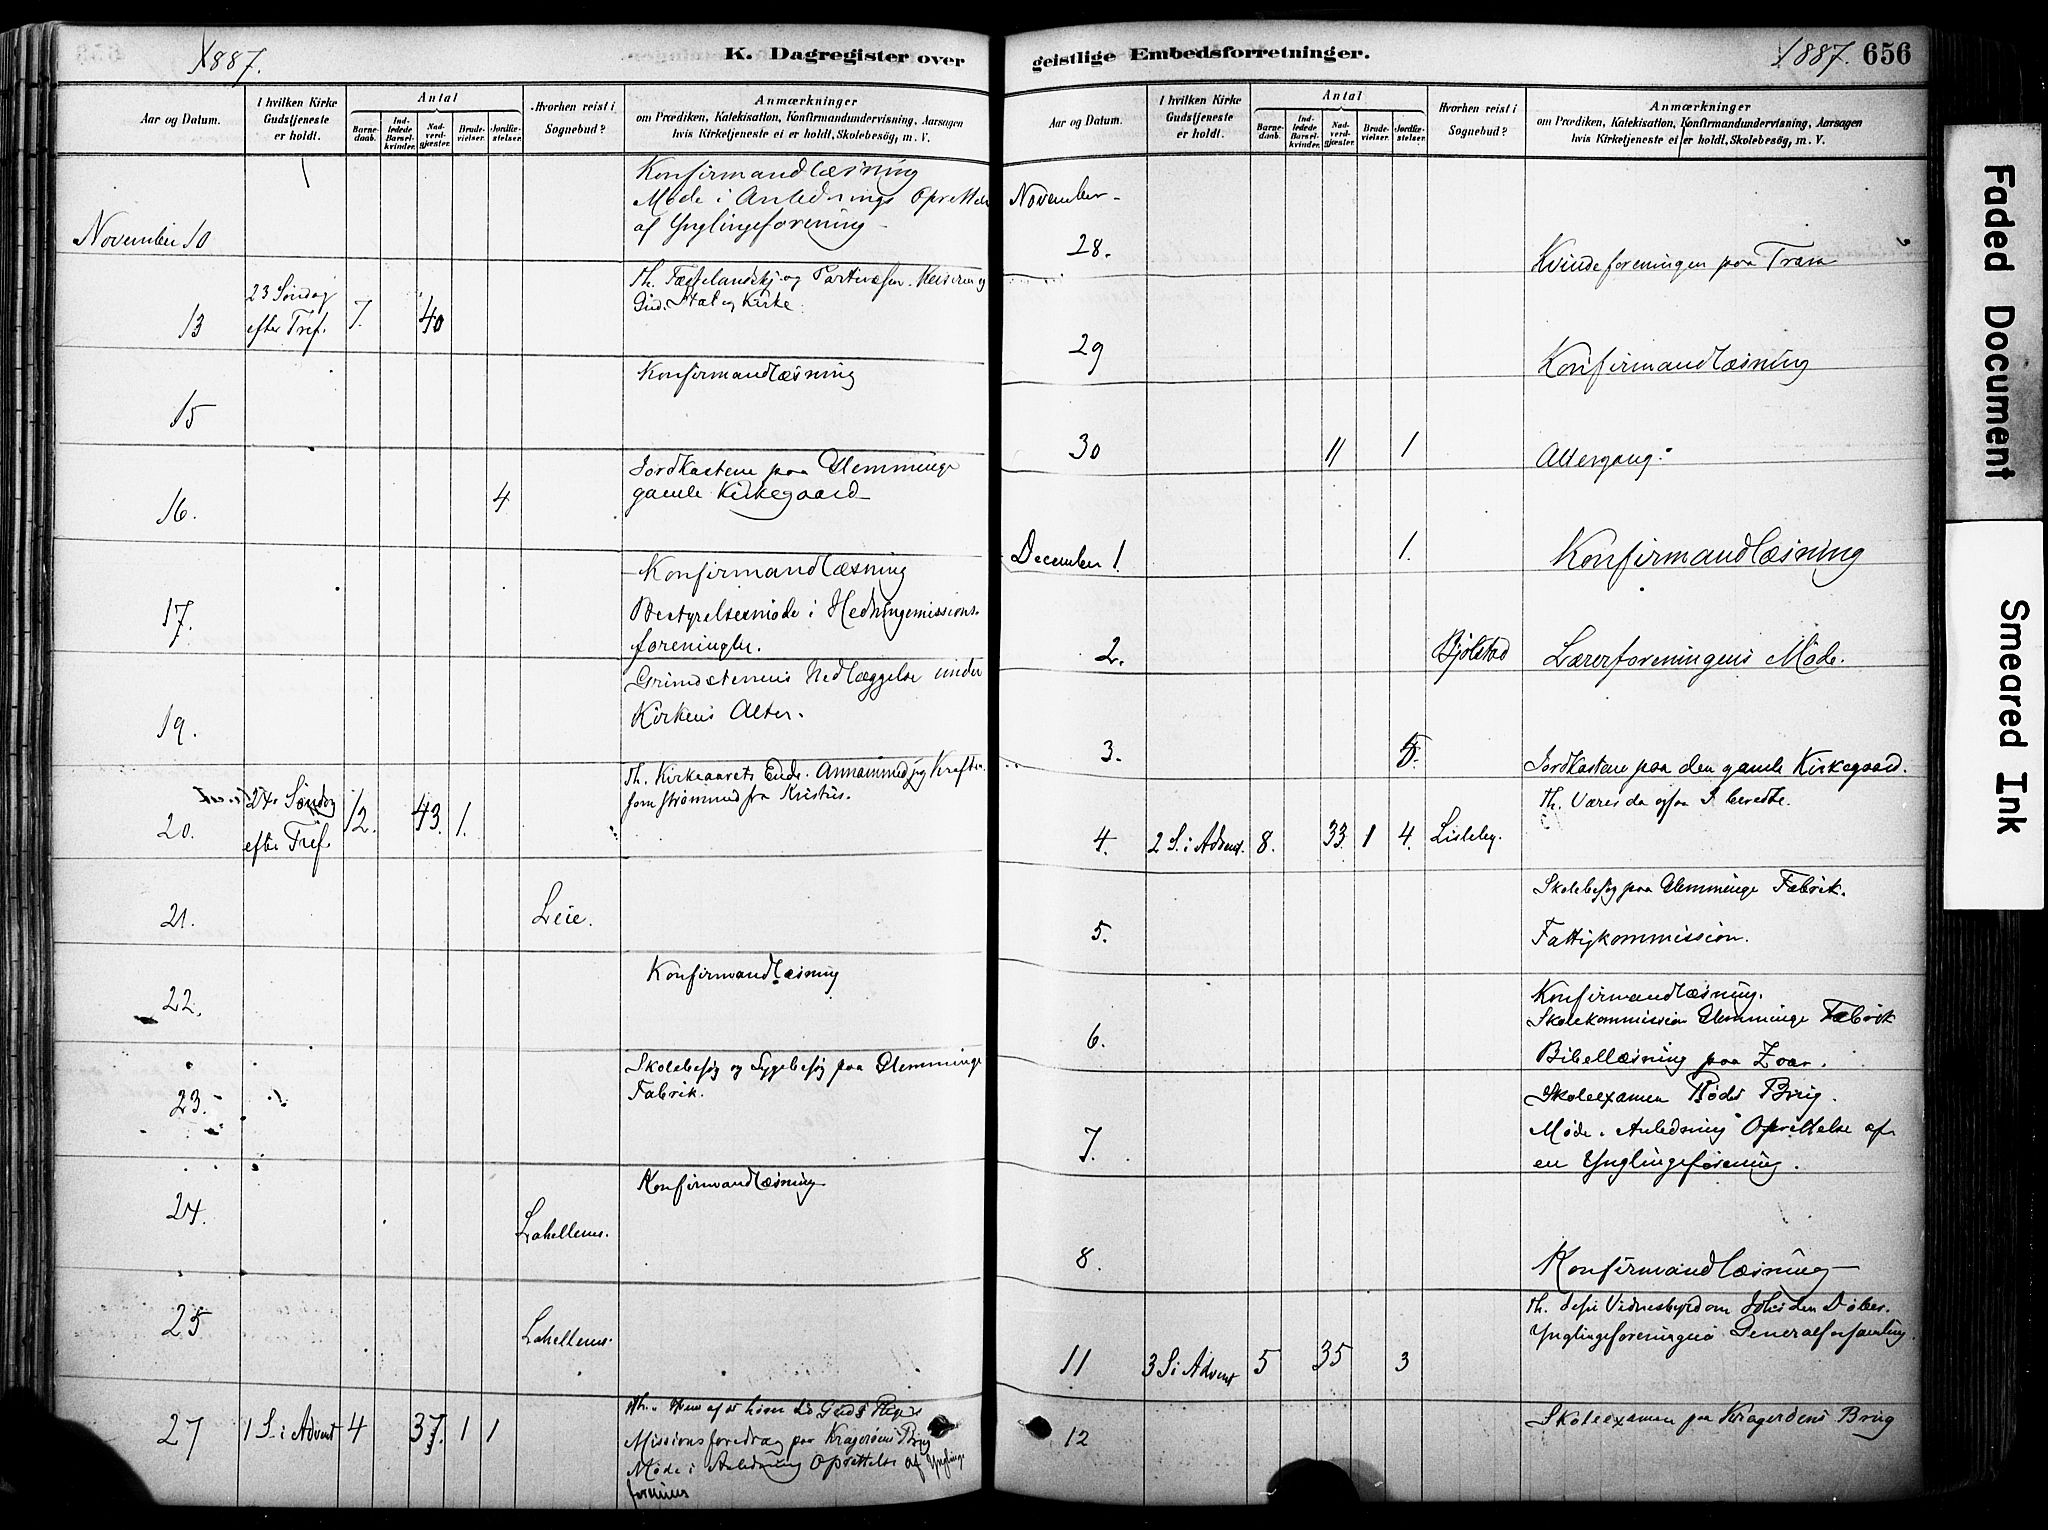 1887.
K. Dagregister over
Aar og Datum.
I hvilken Kirke Gudstjeneste er holdt.
Antal
Barnedaab.
Indledede Barselkvinder.
Nadverdgjæster.
Brudevielser.
Jordfæstelser.
Hvorhen reist i Sognebud?
Anmærkninger
om Prædiken, Katekisation, Konfirmandundervisning, Aarsagen
hvis Kirketjeneste ei er holdt, Skolebesög, m. V.
Konfirmandlæsning
Møde i Anlednings Oprettelse
November 10 af Ynglingeforening
23 Søndag
13 efter Tref. 7. 40
Gud. Stat og Kirke.
Konfirmandlæsning
15
Jordkastene paa Glemminge
16. 4 gamle Kirkegaard
Konfirmandlæsning
17. Bestyrelsesmøde i Hedningemissions-
foreningen.
Grundstenens Nedlæggelse under
19. Kirkens Alter.
Th. Kirkeaarets Ende. Annammed jeg Kraften
24. Søndag som strømmed fra Kristus.
20. efter Tref. 12. 43. 1.
21. Leie.
22. Konfirmandlæsning
Skolebesøg og Sygebesøg paa Glemminge
23. Fabrik.
24. Lahellens. Konfirmandlæsning
25 Lahellens.
27 1 S. i Advent 4 37. 1 1
Missionsforedrag paa Kragerøens Brug
Møde i Anledning Oprettelse af Ynglinge
forening
geistlige Embedsforretninger.
1887. 656
Aar og Datum.
I hvilken Kirke Gudstjeneste er holdt.
Antal
Barnedaab.
Indledede Barselkvinder.
Nadverdgjæster.
Brudevielser.
Jordfæstelser.
Hvorhen reist i Sognebud?
Anmærkninger
om Prædiken, Katekisation, Konfirmandundervisning, Aarsagen
hvis Kirketjeneste ei er holdt, Skolebesög, m. V.
November
28. Kvindeforeningen paa Trara
29 Konfirmandlæsning
30 11 1 Altergang.
December 1. 1. Konfirmandlæsning
2. Bjølstad Lærerforeningens Møde.
3. 5. Jordkastene paa den gamle Kirkegaard.
Th. Værer da ogsaa I beredte.
4. 2 S. i Advent. 8. 33 1 4. Lisleby.
Skolebesøg paa Glemminge Fabrik.
5. Fattigkommission.
Konfirmandlæsning.
Skolekommission Glemminge Fabrik
6. Bibellæsning paa Zoar.
Skoleexamen Rødes Brug.
7. Møde i Anledning Oprettelse af
en Ynglingeforening.
8. Konfirmandlæsning
Ynglingeforeningens Generalforsamling.
11 3 S i Advent 5 35 3
12 Skoleexamen paa Kragerøens Brug
Faded Document
Smeared Ink